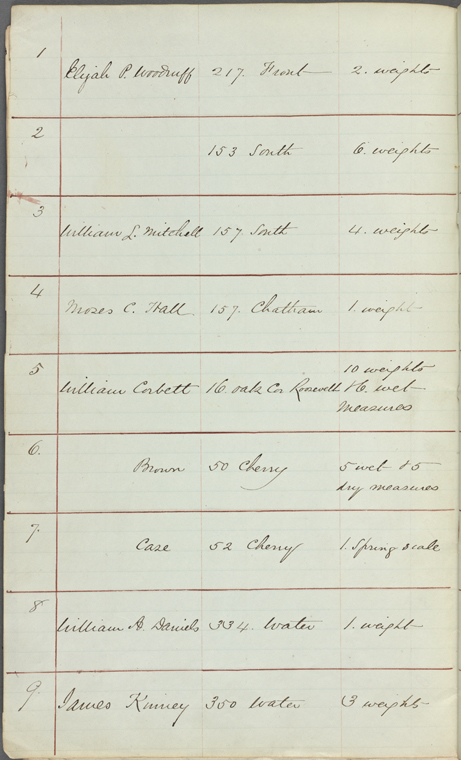 1
Elijah P. Woodruff 217. Front 2. weights
2
153 South 6. weights
3
William L. Mitchell 157 South 4. weights
4
Moses C. Hall 157. Chatham 1. weight
5
10 weights
William Corbett 16. oak Cor Roosevelt & 6. wet
measures
6.
Brown 50 Cherry 5 wet & 5
dry measures
7.
Case 52 Cherry 1. Spring scale
8
William A. Daniels 334. Water 1. weight
9.
James Kinney 350 Water 3 weights